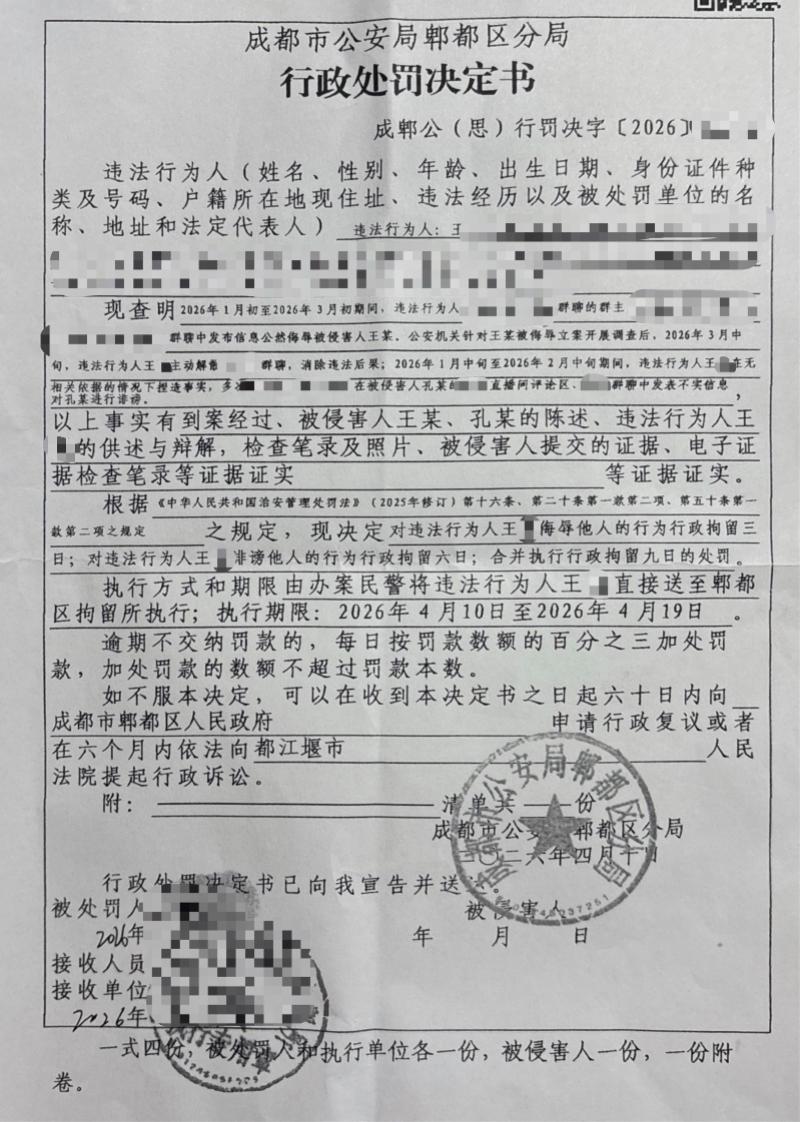 成都市公安局郫都区分局
行政处罚决定书
成郫公（思）行罚决字〔2026〕
违法行为人（姓名、性别、年龄、出生日期、身份证件种
类及号码、户籍所在地现住址、违法经历以及被处罚单位的名
称、地址和法定代表人）违法行为人：王
现查明2026年1月初至2026年3月初期间，违法行为人 群聊的群主
群聊中发布信息公然侮辱被侵害人王某。公安机关针对王某被侮辱立案开展调查后，2026年3月中
旬，违法行为人王 主动解散 群聊，消除违法后果；2026年1月中旬至2026年2月中旬期间，违法行为人王 在无
相关依据的情况下捏造事实，多次 在被侵害人孔某的 直播间评论区、 群聊中发表不实信息
对孔某进行诽谤。，
以上事实有到案经过、被侵害人王某、孔某的陈述、违法行为人王
的供述与辩解，检查笔录及照片、被侵害人提交的证据、电子证
据检查笔录等证据证实 等证据证实。
根据《中华人民共和国治安管理处罚法》（2025年修订）第十六条、第二十条第一款第二项、第五十条第一
款第二项之规定 之规定，现决定 对违法行为人王 侮辱他人的行为行政拘留三
日；对违法行为人王 诽谤他人的行为行政拘留六日；合并执行行政拘留九日的处罚。
执行方式和期限由办案民警将违法行为人王 直接送至郫都
区拘留所执行；执行期限：2026年4月10日至2026年4月19日。
逾期不交纳罚款的，每日按罚款数额的百分之三加处罚
款，加处罚款的数额不超过罚款本数。
如不服本决定，可以在收到本决定书之日起六十日内向
成都市郫都区人民政府 申请行政复议或者
在六个月内依法向都江堰市 人民
法院提起行政诉讼。
附： 清单共 份
成都市公安 郫都区分局
二〇二六年四月十日
行政处罚决定书已向我宣告并送达。
被处罚人 被侵害人
2026年 年 月 日
接收人员
接收单位
2026年
一式四份，被处罚人和执行单位各一份，被侵害人一份，一份附
卷。